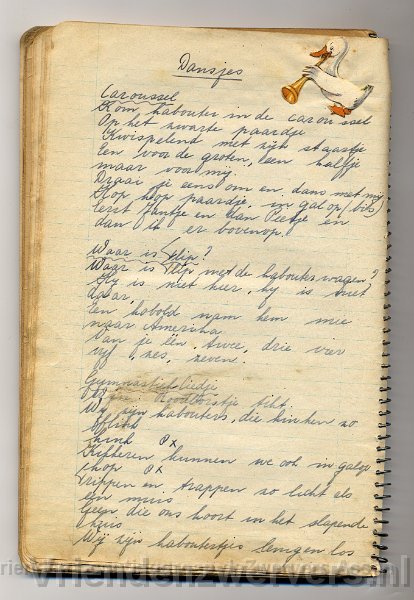 Dansjes
Caroussel
Kom kabouter in de caroussel
Op het zwarte paardje
Kwispelend met zijn staartje
Een voor de groten, een halfje
maar voor mij.
Draai je eens om en dans met mij
Hop hop paardje in galop /bis/
eerst Jantje en dan Peetje en
dan ik er bovenop!
Waar is Flip?
Waar is Flip met de kabouterwagen?
Hij is niet hier, hij is niet
daar,
Een kobold nam hem mee
naar Amerika
Van je één, twee, drie vier
vijf, zes, zeven.
Gymnastiekliedje
Roodborstje tikt
Wij zijn kabouters, die hinken zo
flink
hink
Kipperen kunnen we ook in galop
hop
Trippen en trappen zo licht als
een muis
Geen die ons hoort in het slapende
huis
Wij zijn kaboutertjes lenig en los
vriendenzwervers.nl